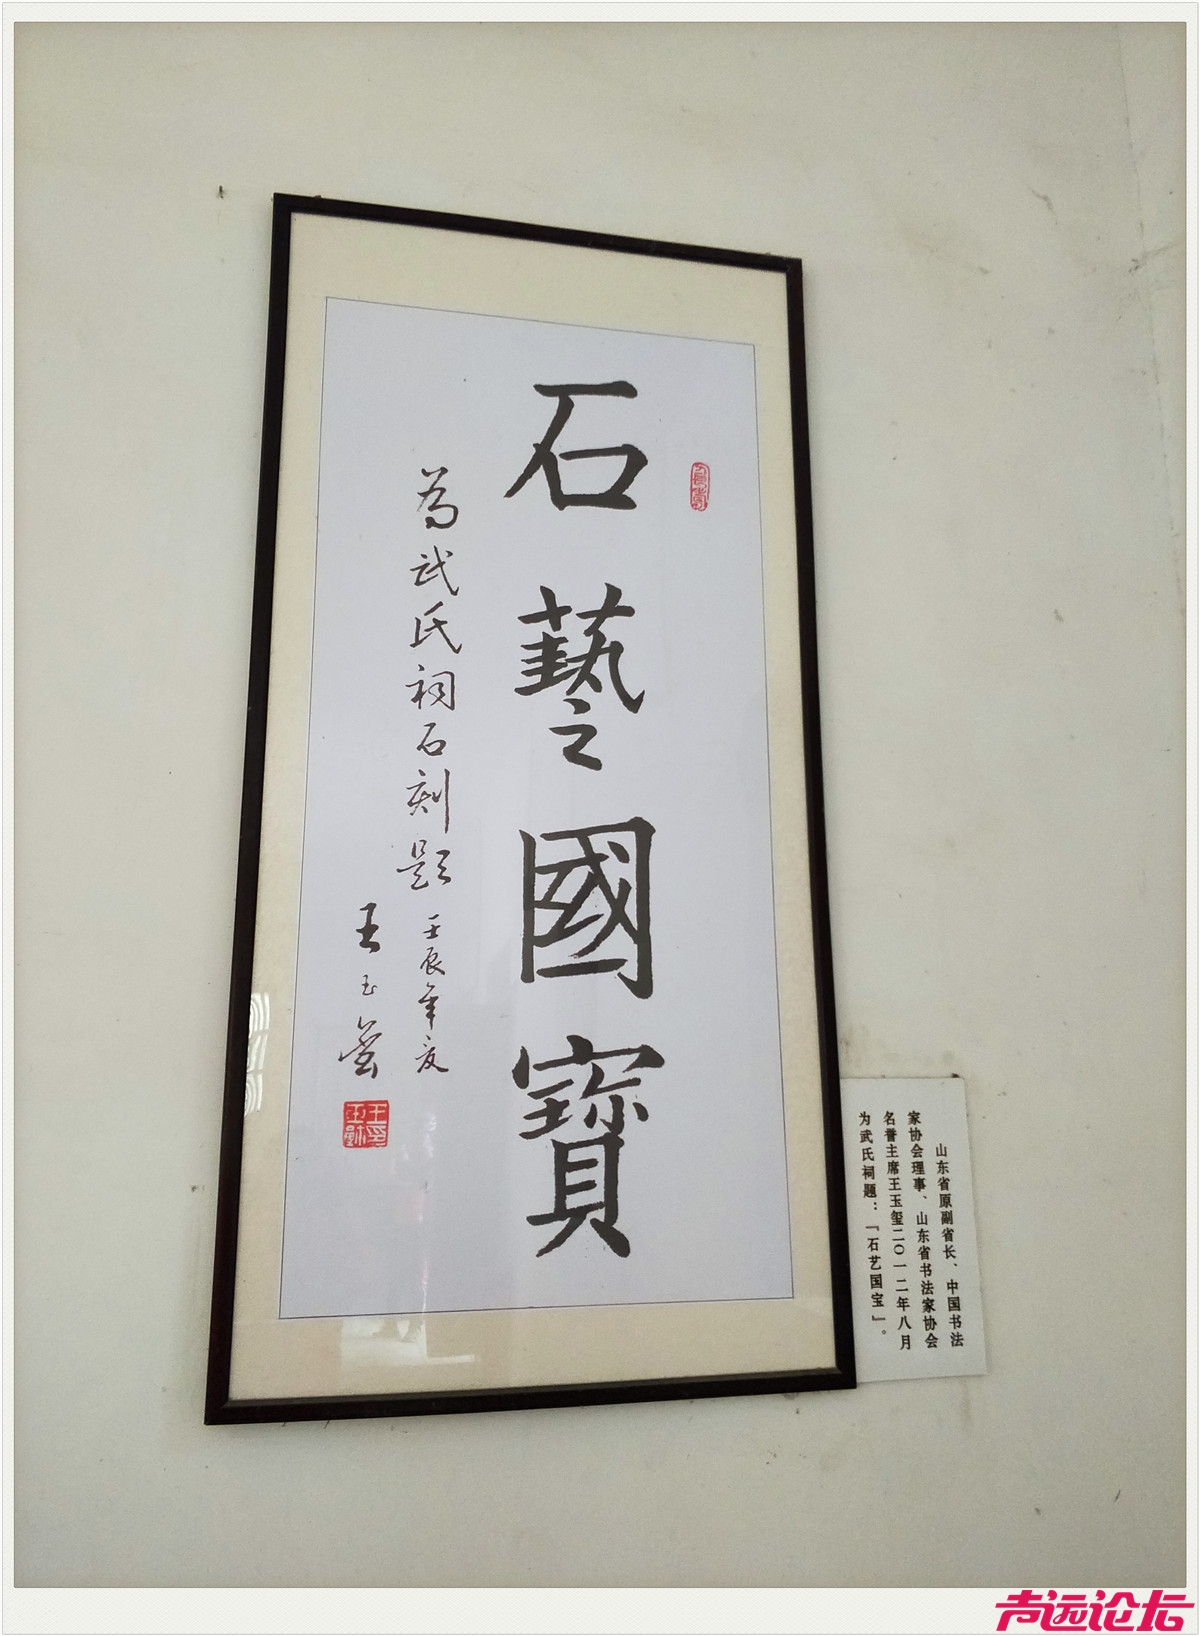 石藝國寶
為武氏祠石刻題
壬辰年夏
王玉璽
山东省原副省长、中国书法
家协会理事、山东省书法家协会
名誉主席王玉玺二〇一二年八月
为武氏祠题：「石艺国宝」。
声远论坛